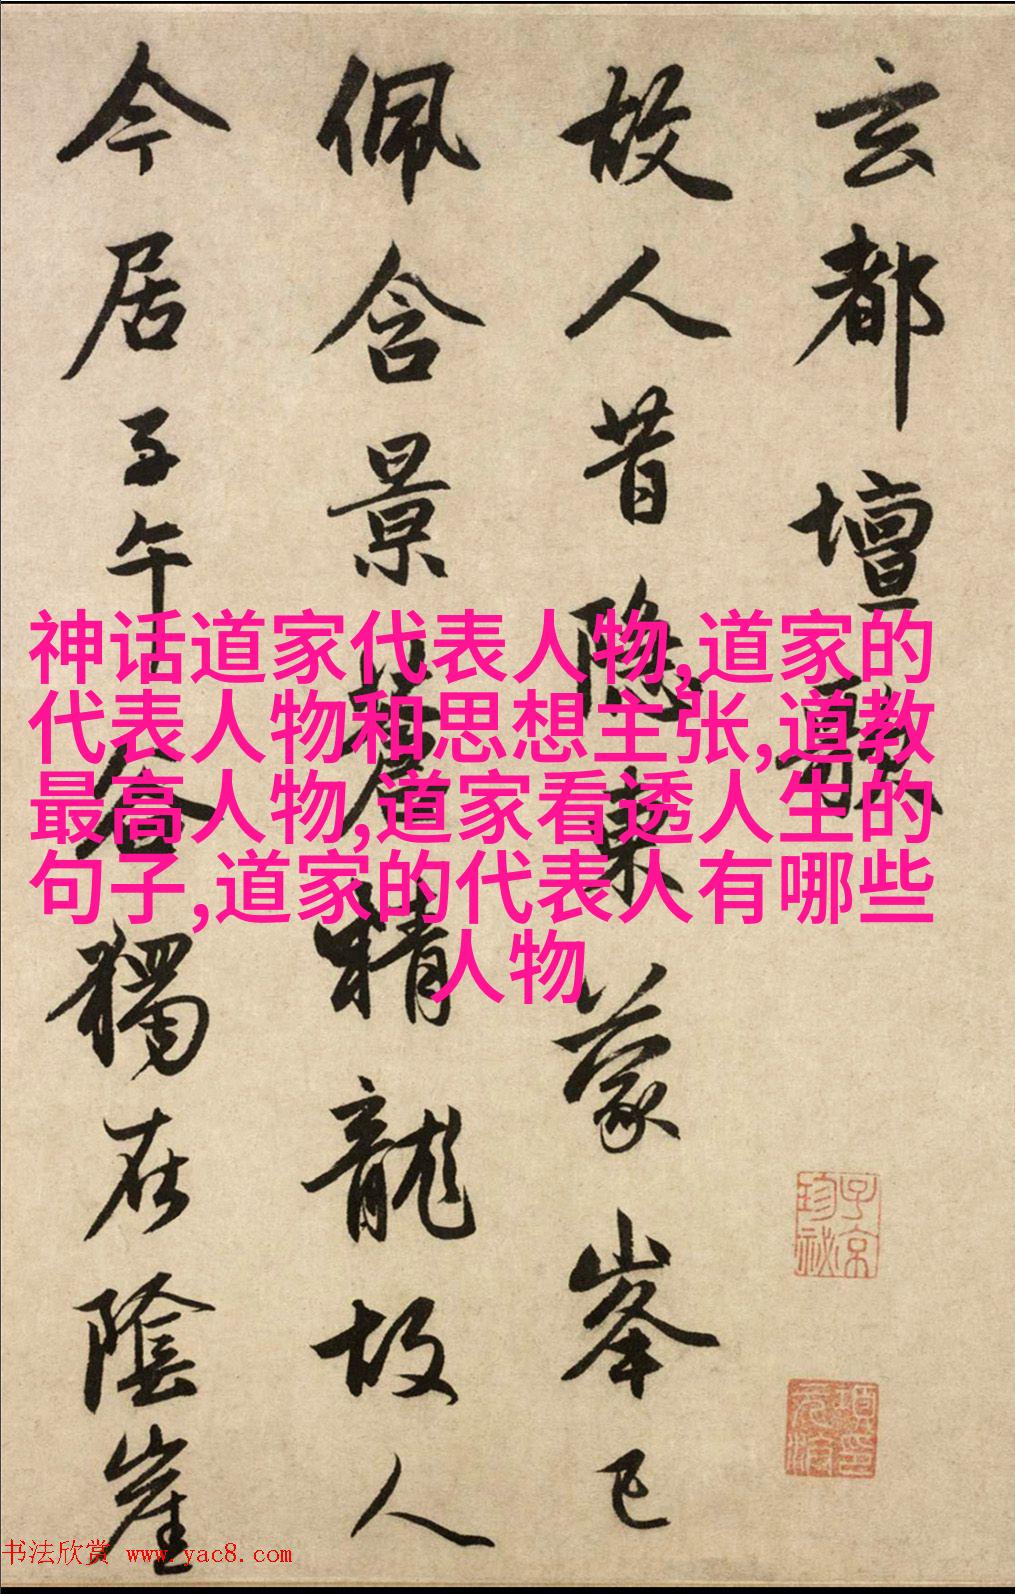 玄都壇歌
故人昔隐東蒙峯已
佩含景蒼精龍故人
今居子午谷獨在陰崖
神话道家代表人物,道家的
代表人物和思想主张,道教
最高人物,道家看透人生的
句子,道家的代表人有哪些
人物
子京
珍祕
书法欣赏 www.yac8.com